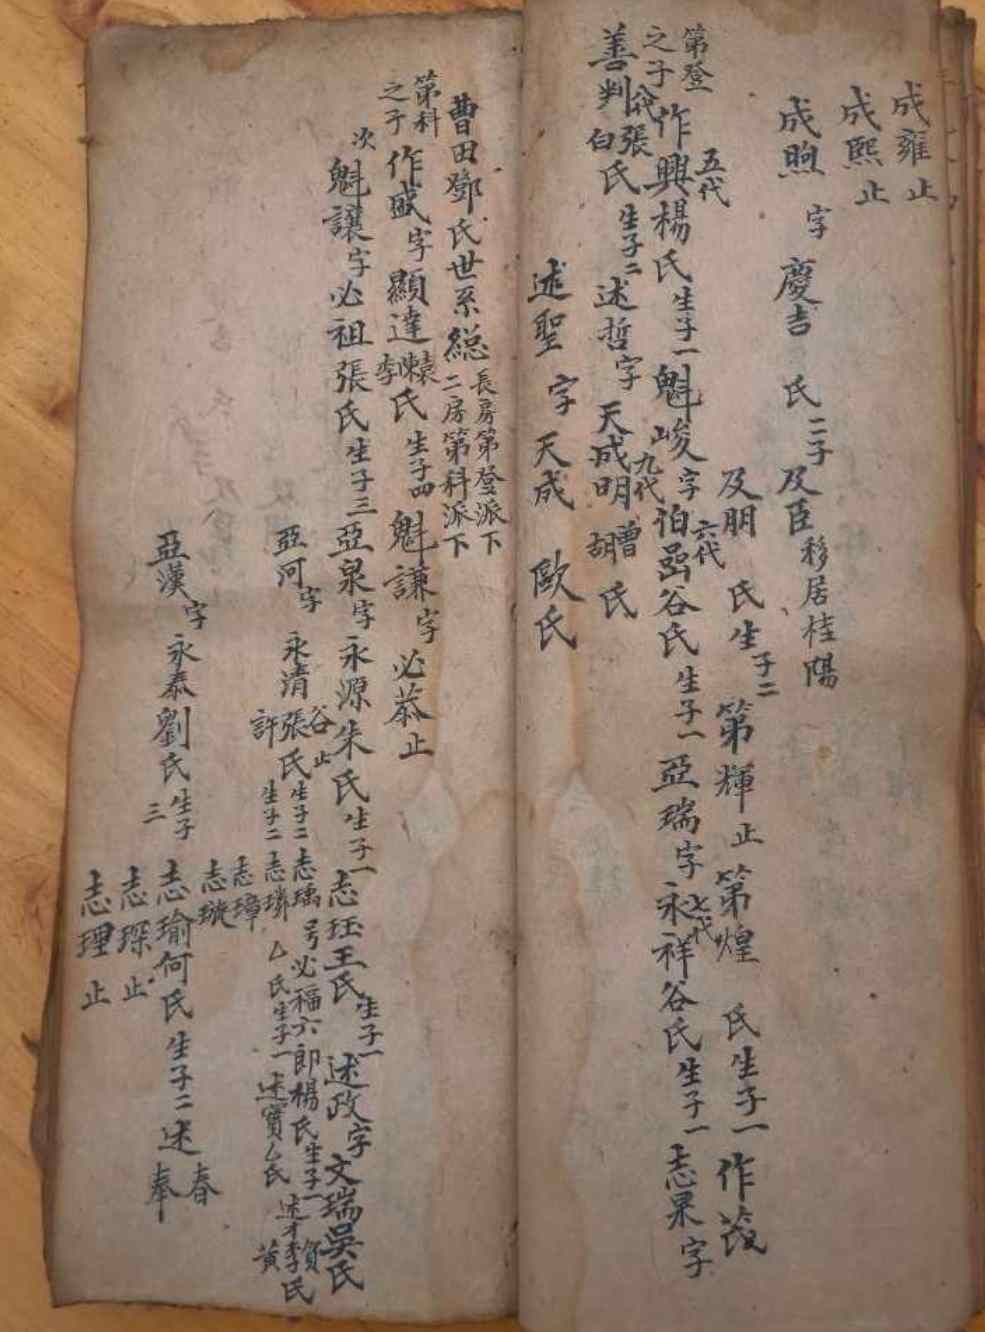 成雍止
成熙止
成煦 字 慶吉 氏 二子 及臣 移居桂陽
及朋 氏生子二 第輝止 第煌 氏生子一 作
第登之子 作興楊氏生子一 魁峻字伯 谷氏生子一 亞瑞字永祥谷氏生子一 志果字
五代
六代
七代
善判 張白氏生子二 述哲字天成明 曹胡氏
八代
九代
述聖 字 天成 歐氏
曹田鄧氏世系總 長房第登派下 二房第科派下
第科之子 作盛字顯達 袁陳李氏生子四 魁謙字必恭止
次 魁讓字必祖張氏生子三 亞泉字永源朱氏生子一 志玨王氏生子一 述政字文瑞吳氏
亞河字 永清 谷止 張氏生子二 志瑀号必福六郎楊氏生子一 述才 賀李黃氏
許 生子二 志璘 厶氏生子一 述寶厶氏
志璋
志璇
亞漢字永泰劉氏生子三 志瑜何氏生子二 述春奉
志琛止
志理止